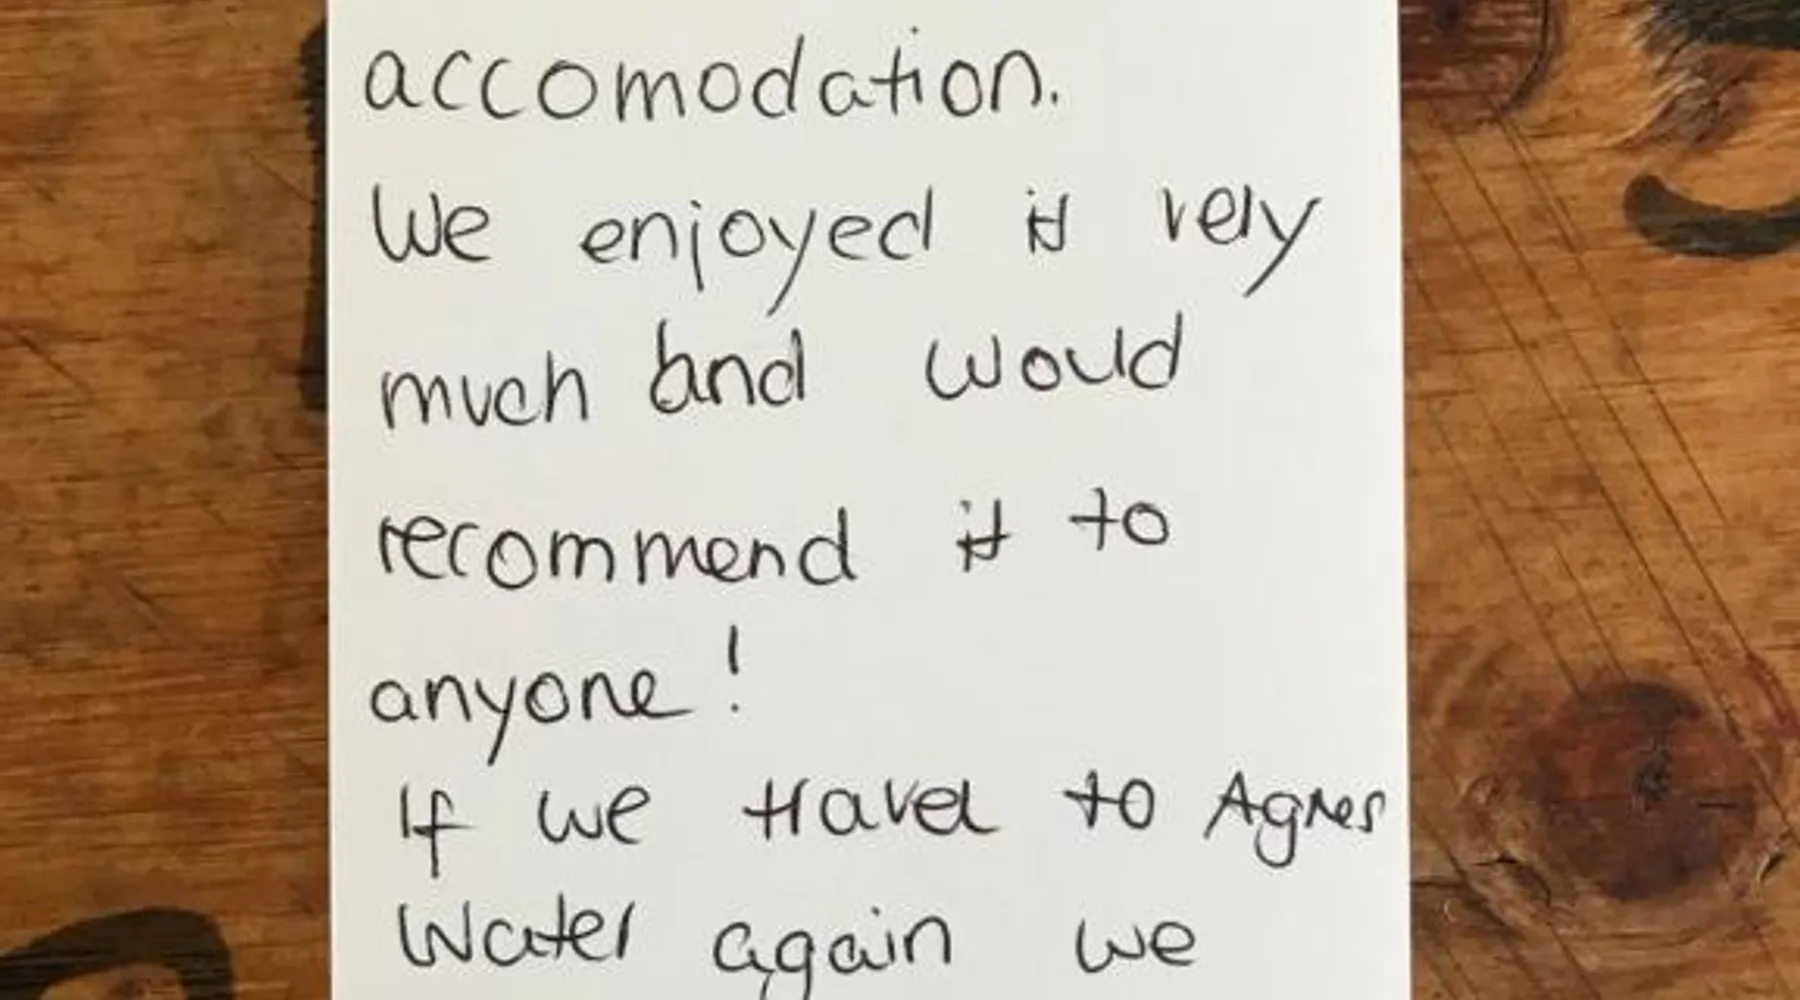 accomodation.
We enjoyed it very
much and would
recommend it to
anyone!
If we travel to Agnes
Water again we